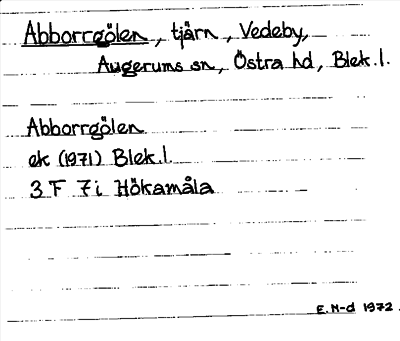 Abborrgölen, tjärn, Vedeby,
Augerums sn, Östra hd, Blek.l.
Abborrgölen
ek (1971) Blek.l.
3 F 7i Hökamåla
E.N-d 1972.